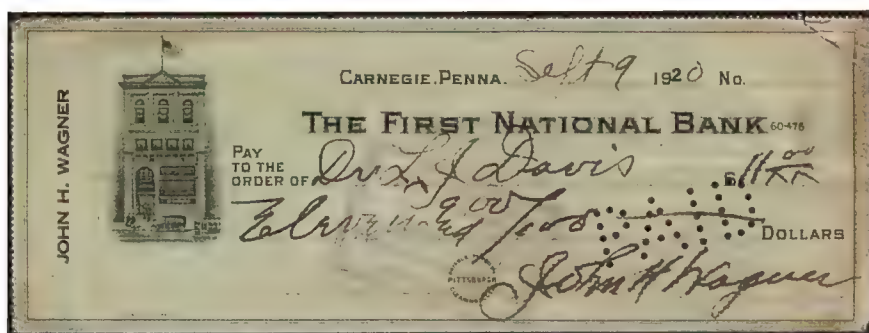 JOHN H. WAGNER
CARNEGIE, PENNA. Sept 9 1920 No.
THE FIRST NATIONAL BANK 60-476
PAY
TO THE
ORDER OF Dr L. J. Davis $11.00
Eleven and 00/100 DOLLARS
PITTSBURGH
John H Wagner